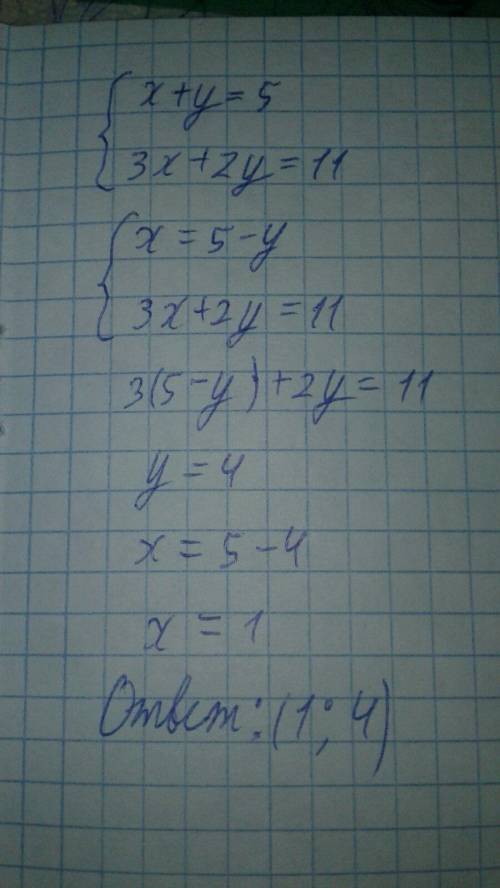 x+y=5
3x+2y=11
x=5-y
3x+2y=11
3(5-y)+2y=11
y=4
x=5-4
x=1
Ответ: (1; 4)